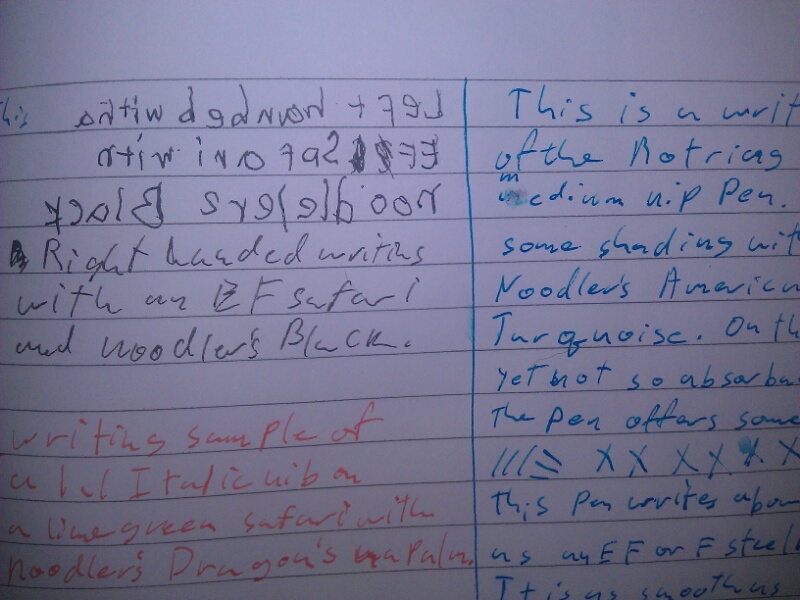 This
Left handed writing
EF Safari with
noodlers Black
Right handed writing
with an EF safari
and noodler's Black.
writing sample of
a 1.1 Italic nib on
a lime green safari with
noodler's Dragon's napalm.
This is a writ
of the Rotring
medium nip Pen.
some shading wit
Noodler's American
Turquoise. On th
yet not so absorba
The pen offers some
///= X X X X X X
this Pen writes abou
as an EF or F steel
It is as smooth as